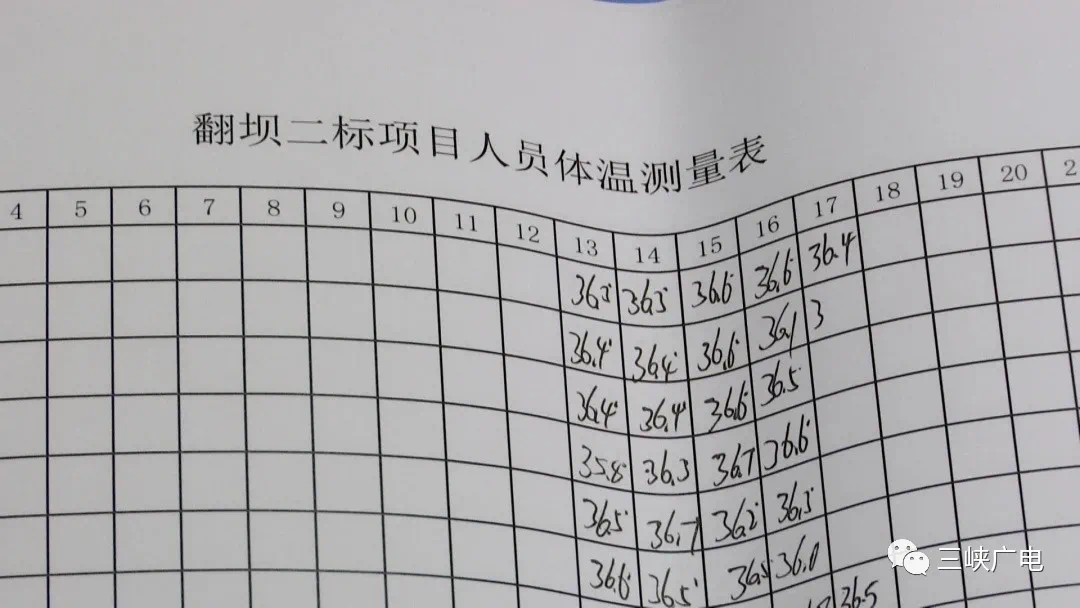 翻坝二标项目人员体温测量表
4 5 6 7 8 9 10 11 12 13 14 15 16 17 18 19 20 2
36.3° 36.5° 36.6° 36.6° 36.4
36.4° 36.4° 36.6° 36.1 3
36.4° 36.4° 36.6° 36.5°
35.8° 36.3 36.7 36.6°
36.5° 36.7 36.2° 36.3°
36.6° 36.5° 36.0
36.5
三峡广电